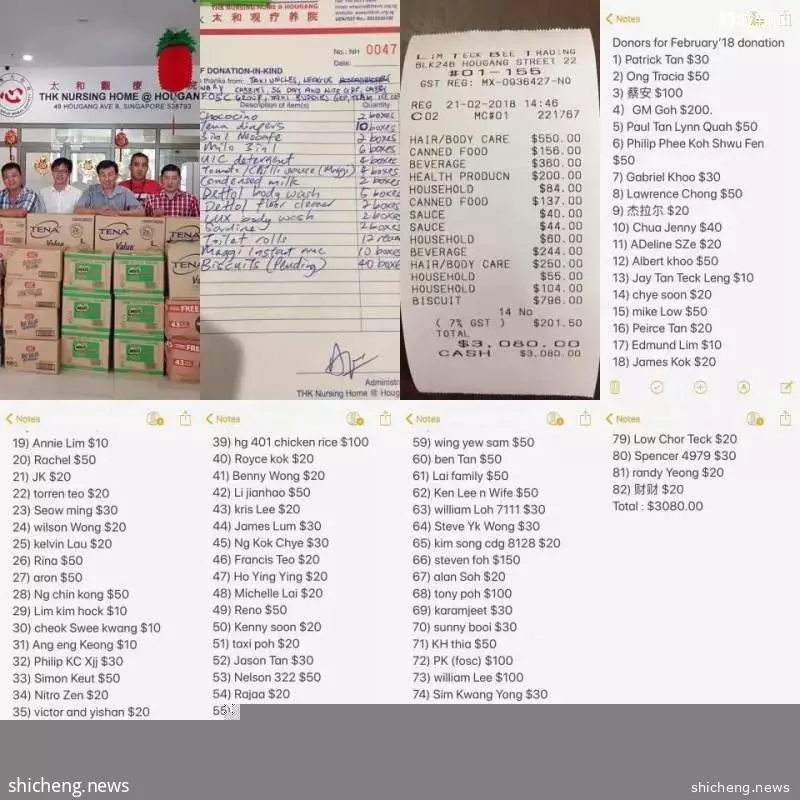 太和觀療養院
THK NURSING HOME @ HOUGANG
48 HOUGANG AVE 8, SINGAPORE 538793
TENA
Value
TENA
Value
TENA
Value
MILO
MILO
MILO
MILO
FREE
FREE
太和观疗养院
THK NURSING HOME @ HOUGANG
No.: NH 0047
Date:
OF DONATION-IN-KIND
thanks from: TAXI UNCLES, LEAGUE
CABBIES, SG DAY AND NITE GRP, CABBY
FOSC GROUP, TAXI BUDDIES GRP, TEAM
Description of Item(s)
Quantity
Chococino 2 boxes
Tena diapers 10 boxes
3 in 1 Nescafe 2 boxes
Milo 3 in 1 6 boxes
UIC detergent 4 boxes
Tomato/Chilli sauce (Maggi) 4 boxes
Condensed milk 2 boxes
Dettol body wash 5 boxes
Dettol floor cleaner 2 boxes
Lux body wash 2 boxes
Sardine 2 boxes
Toilet rolls 12
Maggi Instant mee 10 boxes
Biscuits (Pending) 40 boxes
Administra
THK Nursing Home @ Houg
LIM TECK BEE TRADING
BLK248 HOUGANG STREET 22
#01-155
GST REG: MX-0936427-N0
REG 21-02-2018 14:46
C02 MC#01 221767
HAIR/BODY CARE $550.00
CANNED FOOD $156.00
BEVERAGE $360.00
HEALTH PRODUCN $200.00
HOUSEHOLD $84.00
CANNED FOOD $137.00
SAUCE $40.00
SAUCE $44.00
HOUSEHOLD $60.00
BEVERAGE $244.00
HAIR/BODY CARE $250.00
HOUSEHOLD $55.00
HOUSEHOLD $104.00
BISCUIT $796.00
14 No
( 7% GST ) $201.50
TOTAL
$3,080.00
CASH $3,080.00
Notes
Donors for February'18 donation
1) Patrick Tan $30
2) Ong Tracia $50
3) 蔡安 $100
4) GM Goh $200.
5) Paul Tan Lynn Quah $50
6) Philip Phee Koh Shwu Fen
$50
7) Gabriel Khoo $30
8) Lawrence Chong $50
9) 杰拉尔 $20
10) Chua Jenny $40
11) ADeline SZe $20
12) Albert khoo $50
13) Jay Tan Teck Leng $10
14) chye soon $20
15) mike Low $50
16) Peirce Tan $20
17) Edmund Lim $10
18) James Kok $20
Notes
19) Annie Lim $10
20) Rachel $50
21) JK $20
22) torren teo $20
23) Seow ming $30
24) wilson Wong $20
25) kelvin Lau $20
26) Rina $50
27) aron $50
28) Ng chin kong $50
29) Lim kim hock $10
30) cheok Swee kwang $10
31) Ang eng Keong $10
32) Philip KC Xjj $30
33) Simon Keut $50
34) Nitro Zen $20
35) victor and yishan $20
Notes
39) hg 401 chicken rice $100
40) Royce kok $20
41) Benny Wong $20
42) Li jianhao $50
43) kris Lee $20
44) James Lum $30
45) Ng Kok Chye $30
46) Francis Teo $20
47) Ho Ying Ying $20
48) Michelle Lai $20
49) Reno $50
50) Kenny soon $20
51) taxi poh $20
52) Jason Tan $30
53) Nelson 322 $50
54) Rajaa $20
55)
Notes
59) wing yew sam $50
60) ben Tan $50
61) Lai family $50
62) Ken Lee n Wife $50
63) william Loh 7111 $30
64) Steve Yk Wong $30
65) kim song cdg 8128 $20
66) steven foh $150
67) alan Soh $20
68) tony poh $100
69) karamjeet $30
70) sunny booi $30
71) KH thia $50
72) PK (fosc) $100
73) william Lee $100
74) Sim Kwang Yong $30
Notes
79) Low Chor Teck $20
80) Spencer 4979 $30
81) randy Yeong $20
82) 财财 $20
Total : $3080.00
shicheng.news
shicheng.news